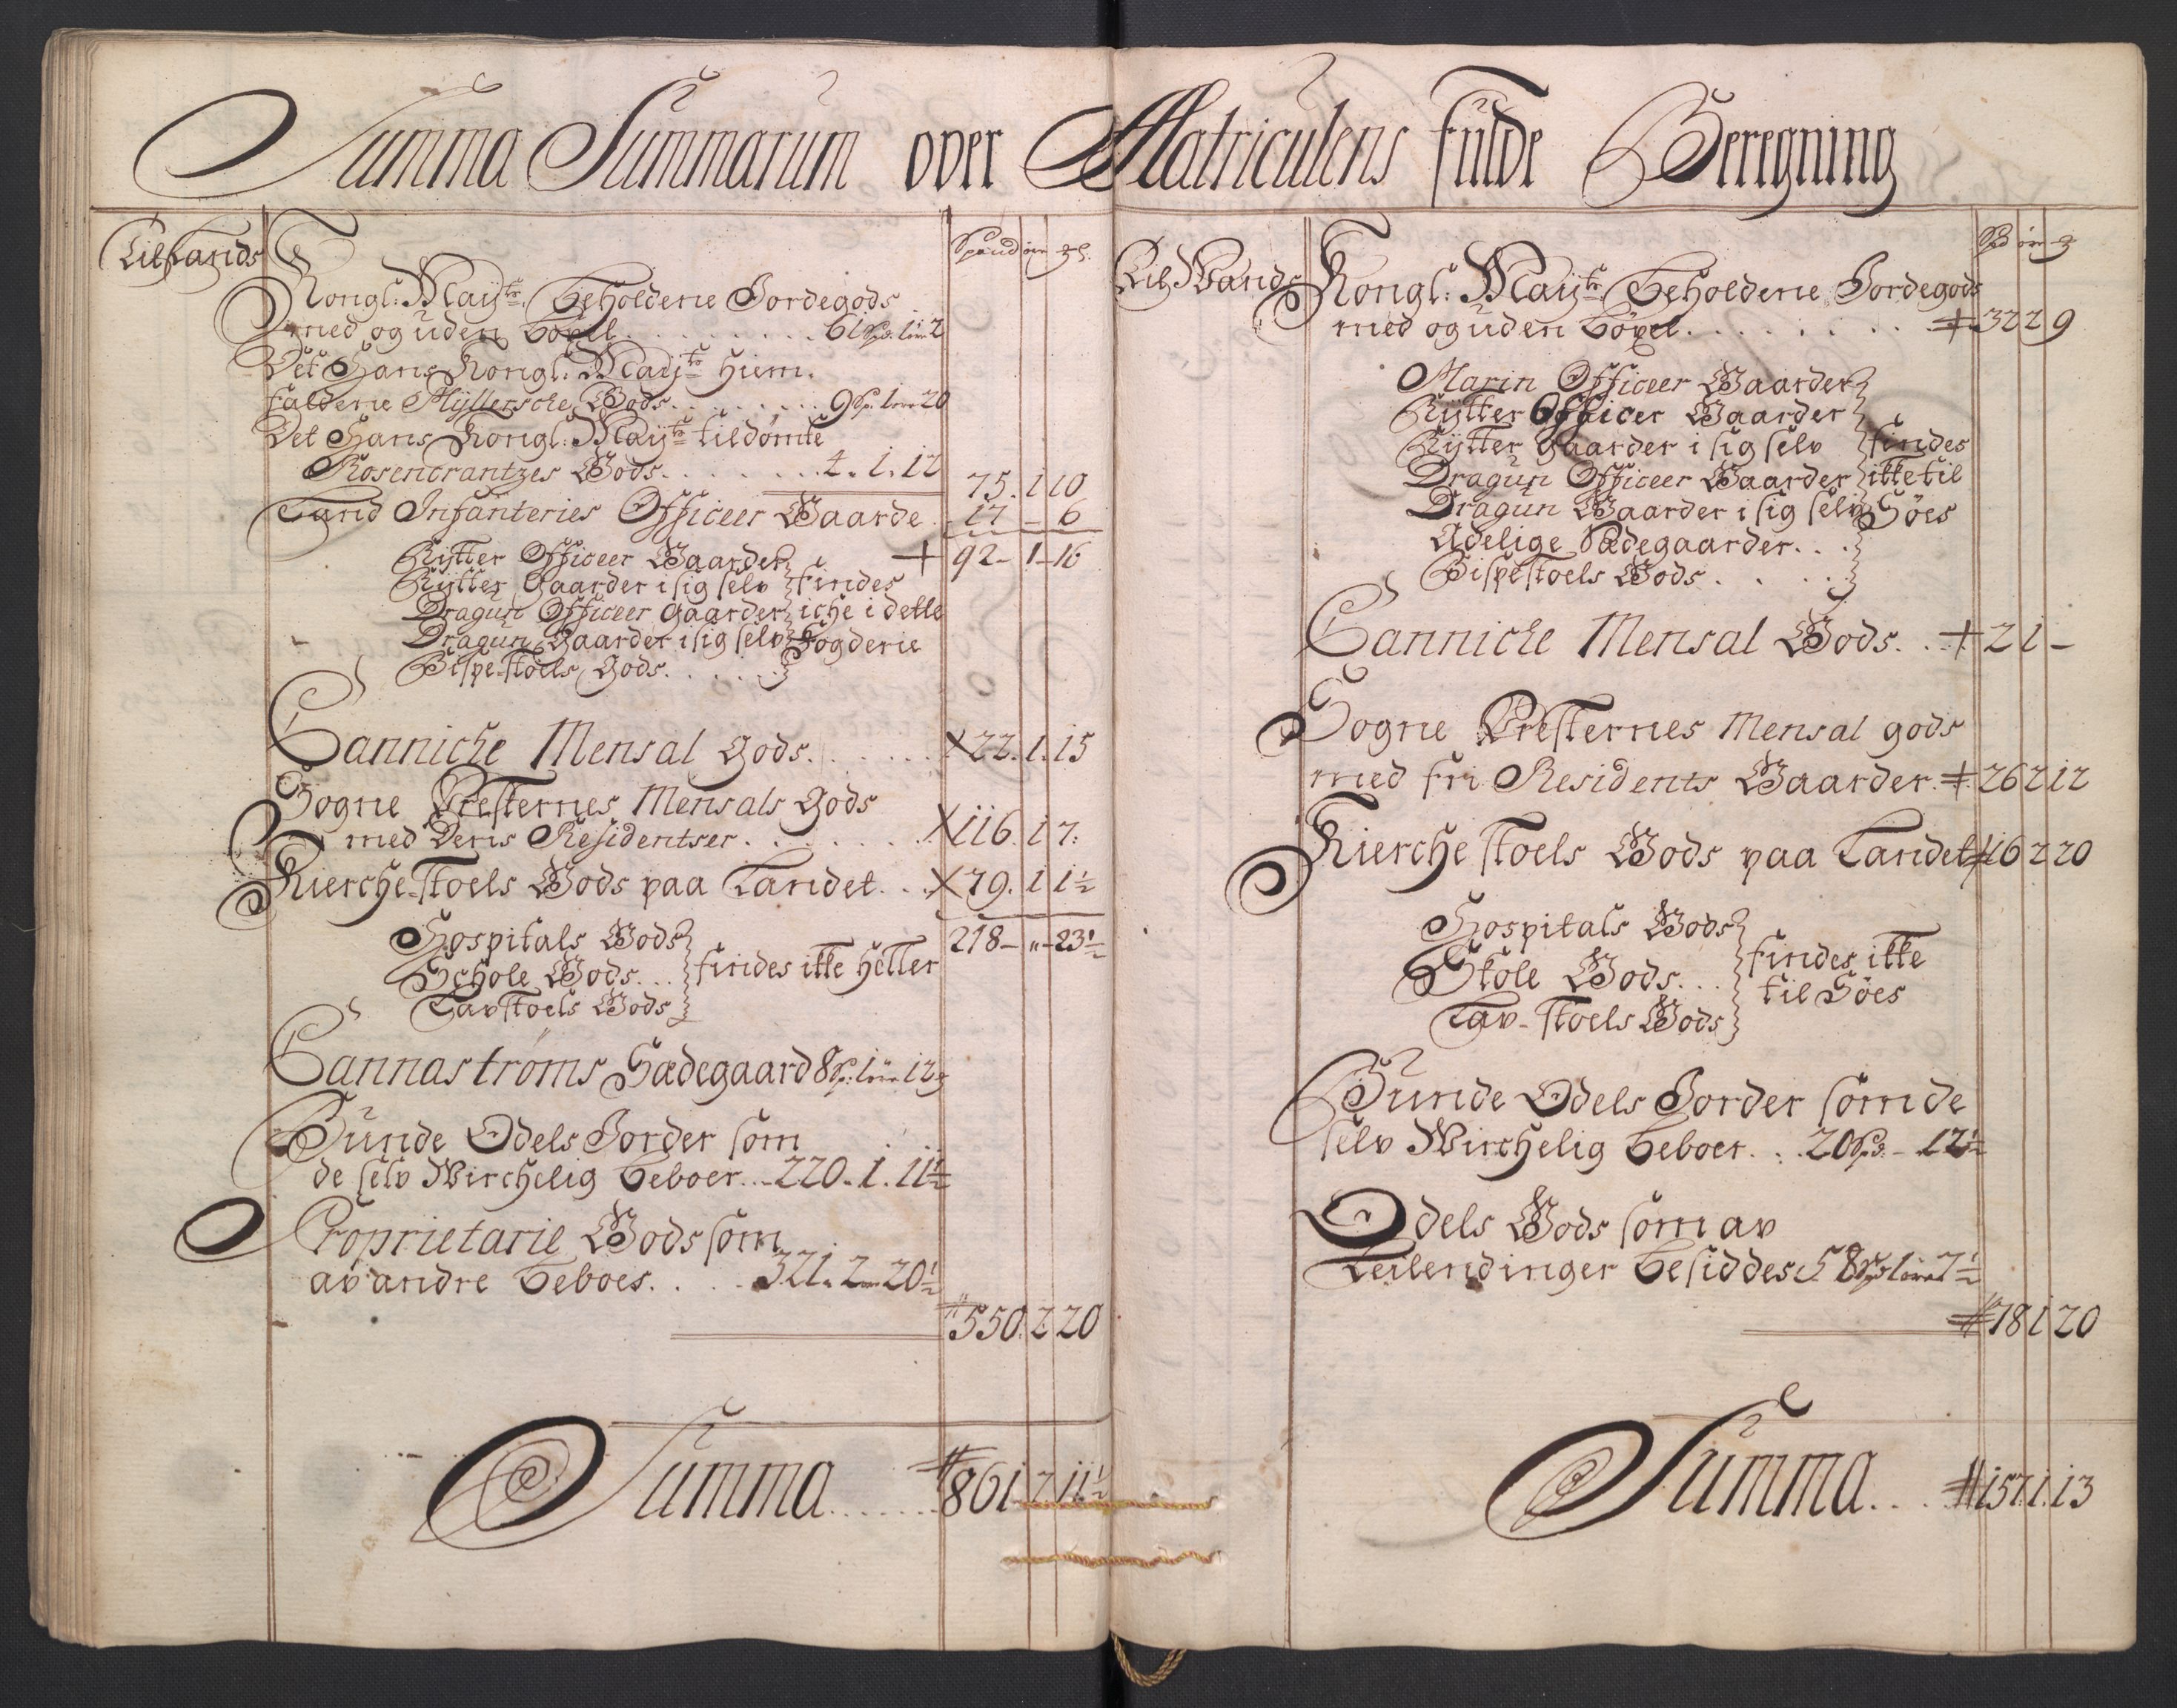 Summa Summarum over Matriculens fulde Beregning
Til Lands
Spand ører
Kongl: Mayts. Beholdene Jordegods
med og uden böxel . . . . . . . . . 61 Sp. 1 ör 2
Det Hans Kongl: Mayts Hiem.
faldene Myllersche Gods . . . . . . . 9 Sp. 1 ör 20
Det Hans Kongl: Mayts tildömte
Rosencrantzes Gods . . . . . . . 4. 1. 12
75. 1 10
Land Infanteries Officeer Gaarde. 17 - 6
+ 92 - 1 - 16
Rytter Officeer Gaarder
Rytter Gaarder i sig selv findes
Dragun Officeer Gaarder iche i dette
Dragun Gaarder i sig selv Fogderie
Bispe-stoels Gods . . . . . .
Canniche Mensal Gods. . . . . . . X 22. 1. 15
Sogne Presternes Mensals Gods
med Deris Residentser . . . . . . . . X 116. 1 7:
Kierche-stoels Gods paa Landet. . . X 79. 1 1½
218 - " - 23½
Hospitals Gods
Schole Gods. . . findes ikke heller
Lavstoels Gods
Cannastroms Sædegaard 8 Sp: 1 ör 12
Bunde Odels Jorder som
de selv Wirchelig beboer. . . 220. 1. 11½
Proprietarie Gods som
av andre beboes. . . . . 321. 2 20½
# 550. 2 20
Summa . . . . . . # 861 2 11½
Til Wands
Spd ör
Kongl: Mayts Beholdene Jordegods
med og uden böxel. . . . . . . . . + 32 2 9
Marin Officeer Gaarder
Rytter Officer Gaarder
Rytter Gaarder i sig selv findes
Dragun Officeer Gaarder ikke til
Dragun Gaarder i sig selv Söes
Adelige Sædegaarder. . .
Bispestoels Gods . . . . .
Canniche Mensal Gods. . . + 2 1 -
Sogne Presternes Mensal gods
med fri Residents Gaarder. # 26 2 12
Kierche stoels Gods paa Landet # 16 2 20
Hospitals Gods
Skole Gods. . . findes ikke
til Söes
Lav-stoels Gods
Bunde Odels Jorder som de
selv Wirchelig beboer. . . 20 Sp: - 12½
Odels Gods som av
Leilendinger Besiddes 58 Sp 1 ör 7½
# 78 1 20
Summa. . . # 157. 1. 13